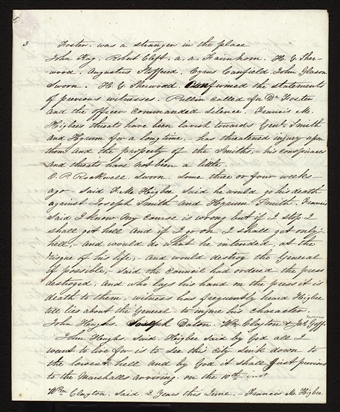 3
Foster. was a stranger in the place
John Kay, Robert Clift, A. A. Farnham, H. G. Sher-
wood, Augustus Stafford, Cyrus Canfield, John Gleason
Sworn. H. G. Sherwood confirmed the statements
of previous witnesses. Pullen called for Dr. Foster
and the officer commanded silence. Francis M.
Higbees threats have been loved towards Genl. Smith
and Hyrum for a long time, has threatened injury upon
them and the property of the Smiths, his conspiracies
and threats have not been a little.
O. P. Rockwell Sworn. Some three or four weeks
ago said F. M. Higbee said he would go his death
against Joseph Smith and Hyrum Smith. Francis
Said, I know my course is wrong but if I stop I
shall get hell and if I go on I shall get only
hell, and would do what he intended, at the
risque of his life, and would destroy the General
if possible, said the Council had ordered the press
destroyed, and who lays his hand on the press it is
death to them, witness has frequently heard Higbee
all lies about the General to injure his character.
John Hughs. Joseph Dalton. Wm. Clayton &
John Hughs said, Higbee said by God all I
want to live for is to see this city sunk down to
the lowest hell and by God it shall, just previous
to the Marshalls arriving on the 10th inst.
Wm. Clayton. Said 2 years this June, Francis M. Higbee